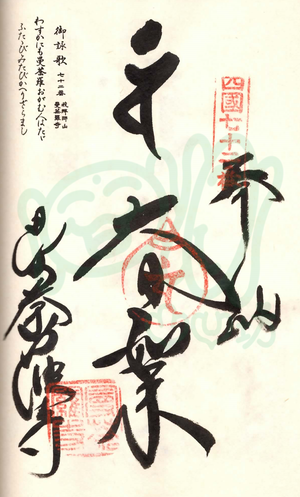 四國七十二番
奉納
大日如来
曼荼羅寺
御詠歌 七十二番 我拝師山 曼荼羅寺
わすかにも曼荼羅おがむ人はたゞ
ふたゝびみたびかへらざらまし